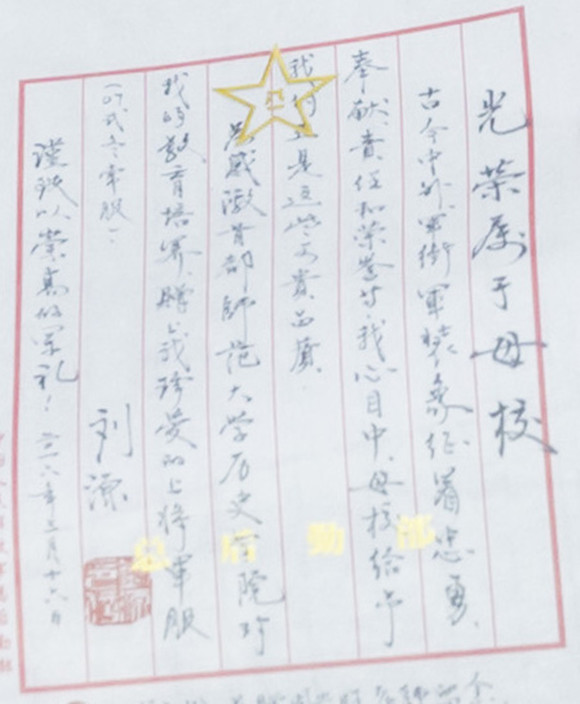 光荣属于母校
古今中外,军衔军装象征着忠勇、
奉献、责任和荣誉。我心目中,母校给予
我们的正是这些可贵品质。
为感激首都師范大学历史学院对
我的教育培养,赠上我珍爱的上将军服
(07式冬常服)。
謹致以崇高的军礼!
刘源
二〇一六年三月十六日
总后勤部